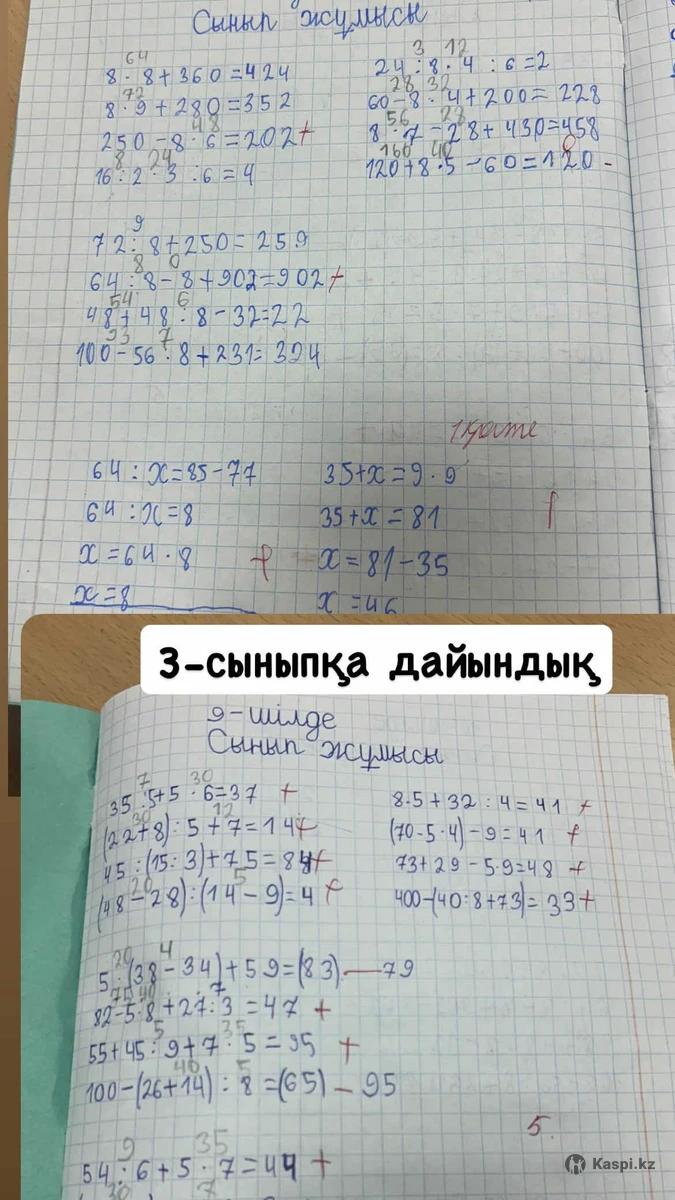 Сынып жұмысы
64
8 · 8 + 360 = 424
72
8 · 9 + 280 = 352
48
250 - 8 · 6 = 202 +
8 24
16 : 2 · 3 : 6 = 4
3 12
24 : 8 · 4 : 6 = 2
28 32
60 - 8 · 4 + 200 = 228
56 28
8 · 7 - 28 + 430 = 458
160 40
120 + 8 · 5 - 60 = 120 -
9
72 : 8 + 250 = 259
8 0
64 : 8 - 8 + 902 = 902 +
54 6
48 + 48 : 8 - 32 = 22
93 7
100 - 56 : 8 + 231 = 324
1 қате
64 : х = 85 - 77
64 : х = 8
х = 64 · 8 +
х = 8
35 + х = 9 · 9
35 + х = 81
х = 81 - 35
х = 46
3-сыныпқа дайындық
9-шілде
Сынып жұмысы
7 30
35 : 5 + 5 · 6 = 37 +
30 12
(22 + 8) : 5 + 7 = 14 +
45 : (15 : 3) + 75 = 84 +
20 5
(48 - 28) : (14 - 9) = 4 +
8 · 5 + 32 : 4 = 41 +
(70 - 5 · 4) - 9 = 41 +
73 + 29 - 5 · 9 = 48 +
400 - (40 : 8 + 73) = 33 +
20 4
5 · (38 - 34) + 59 = (83) — 79
40 7
82 - 5 · 8 + 27 : 3 = 47 +
5 35
55 + 45 : 9 + 7 · 5 = 95 +
40 5
100 - (26 + 14) : 8 = (65) — 95
5.
9 35
54 : 6 + 5 · 7 = 44 +
30 7
Kaspi.kz